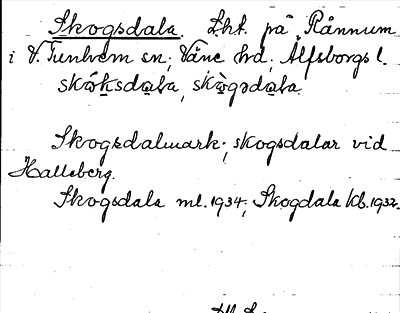 Skogsdala. Lht. på Rånnum
i V. Tunhem sn; Väne hd; Älfsborgs l.
skóksdala, skògsdala.
Skogsdalmark; skogsdalar vid
Halleberg.
Skogsdala ml. 1934; Skogdala kb. 1932.